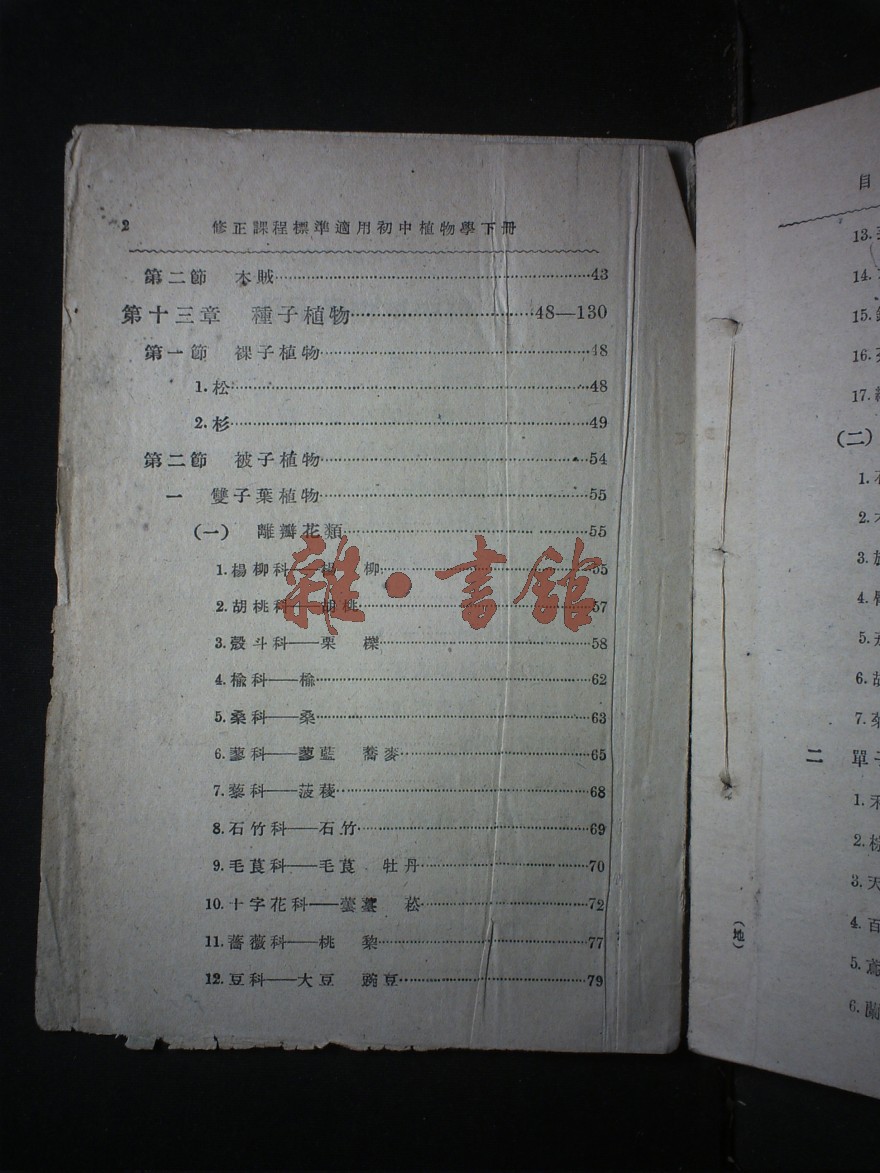 2 修正課程標準適用初中植物學下冊
第二節 木賊……43
第十三章 種子植物……48—130
第一節 裸子植物……48
1.松……48
2.杉……49
第二節 被子植物……54
一 雙子葉植物……55
(一) 離瓣花類……55
1.楊柳科——楊 柳……55
2.胡桃科——胡桃……57
3.殼斗科——栗 櫟……58
4.榆科——榆……62
5.桑科——桑……63
6.蓼科——蓼藍 蕎麥……65
7.藜科——菠薐……68
8.石竹科——石竹……69
9.毛茛科——毛茛 牡丹……70
10.十字花科——蕓薹 菘……72
11.薔薇科——桃 黎……77
12.豆科——大豆 豌豆……79
雜·書館
目
13.
14.
15.
16.
17.
(二)
1.
2.
3.
4.
5.
6.
7.
二 單子
1.禾
2.棕
3.天
4.百
5.鳶
6.蘭
(地)